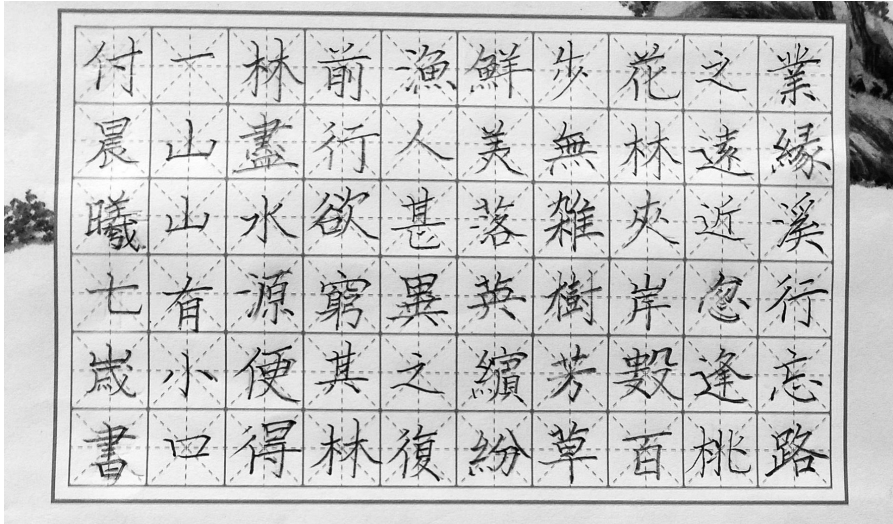 業緣溪行忘路
之遠近忽逢桃
花林夾岸數百
步無雜樹芳草
鮮美落英繽紛
漁人甚異之復
前行欲窮其林
林盡水源便得
一山山有小口
付晨曦七歲書